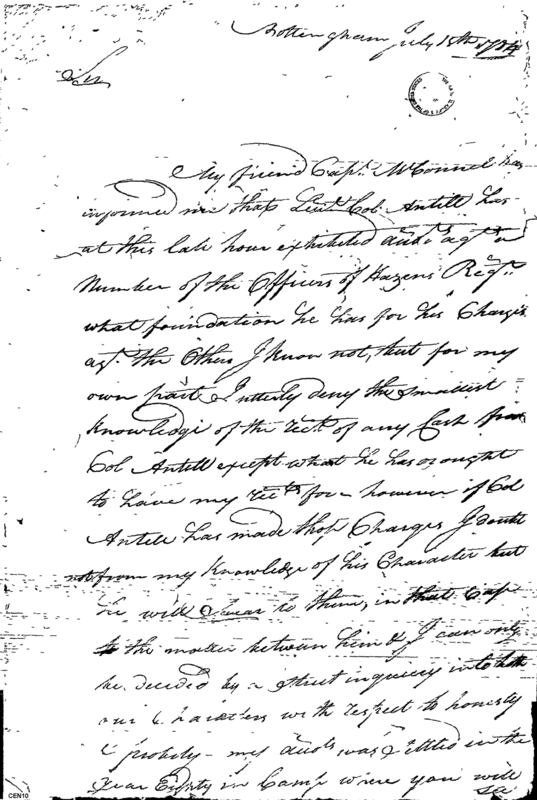 Nottingham July 15th 1784
Sir
My friend Capt. McConnel has
informed me that Lieut. Col. Antill has
at this late hour exhibited acts. agt. a
Number of the Officers of Hazens Regt.
what foundation he has for his Charges
agt. the Others I know not, but for my
own part I utterly deny the smallest
knowledge of the rect. of any Cash from
Col Antill except what he has or ought
to have my rects. for - however if Col
Antill has made those Charges I doubt
not from my knowledge of his Character but
he will Swear to them, in that Case
the matter between him & I can only
be decided by a strict inquiry into both
our Characters with respect to honesty
& probity - my accts. was settled in the
Year Eighty in Camp where you will
see
CEN10